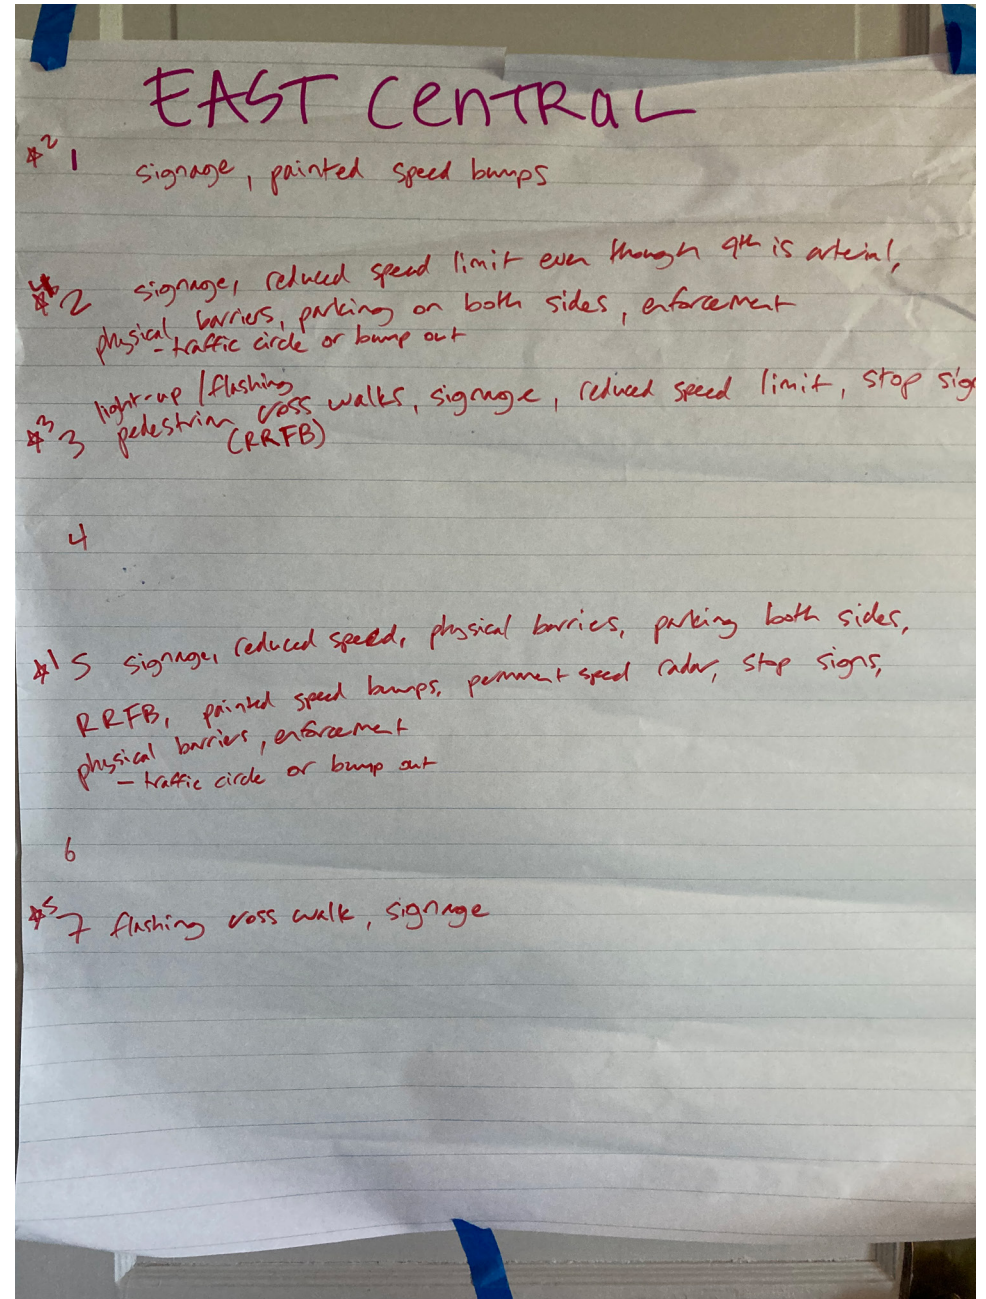 EAST CENTRAL
☆2 1 signage, painted speed bumps
☆4 2 signage, reduced speed limit even though 9th is arterial,
physical barriers, parking on both sides, enforcement
- traffic circle or bump out
light-up / flashing
☆3 3 pedestrian cross walks, signage, reduced speed limit, stop sign
(RRFB)
4
☆1 5 signage, reduced speed, physical barriers, parking both sides,
RRFB, painted speed bumps, permanent speed radar, stop signs,
physical barriers, enforcement
- traffic circle or bump out
6
☆5 7 flashing cross walk, signage